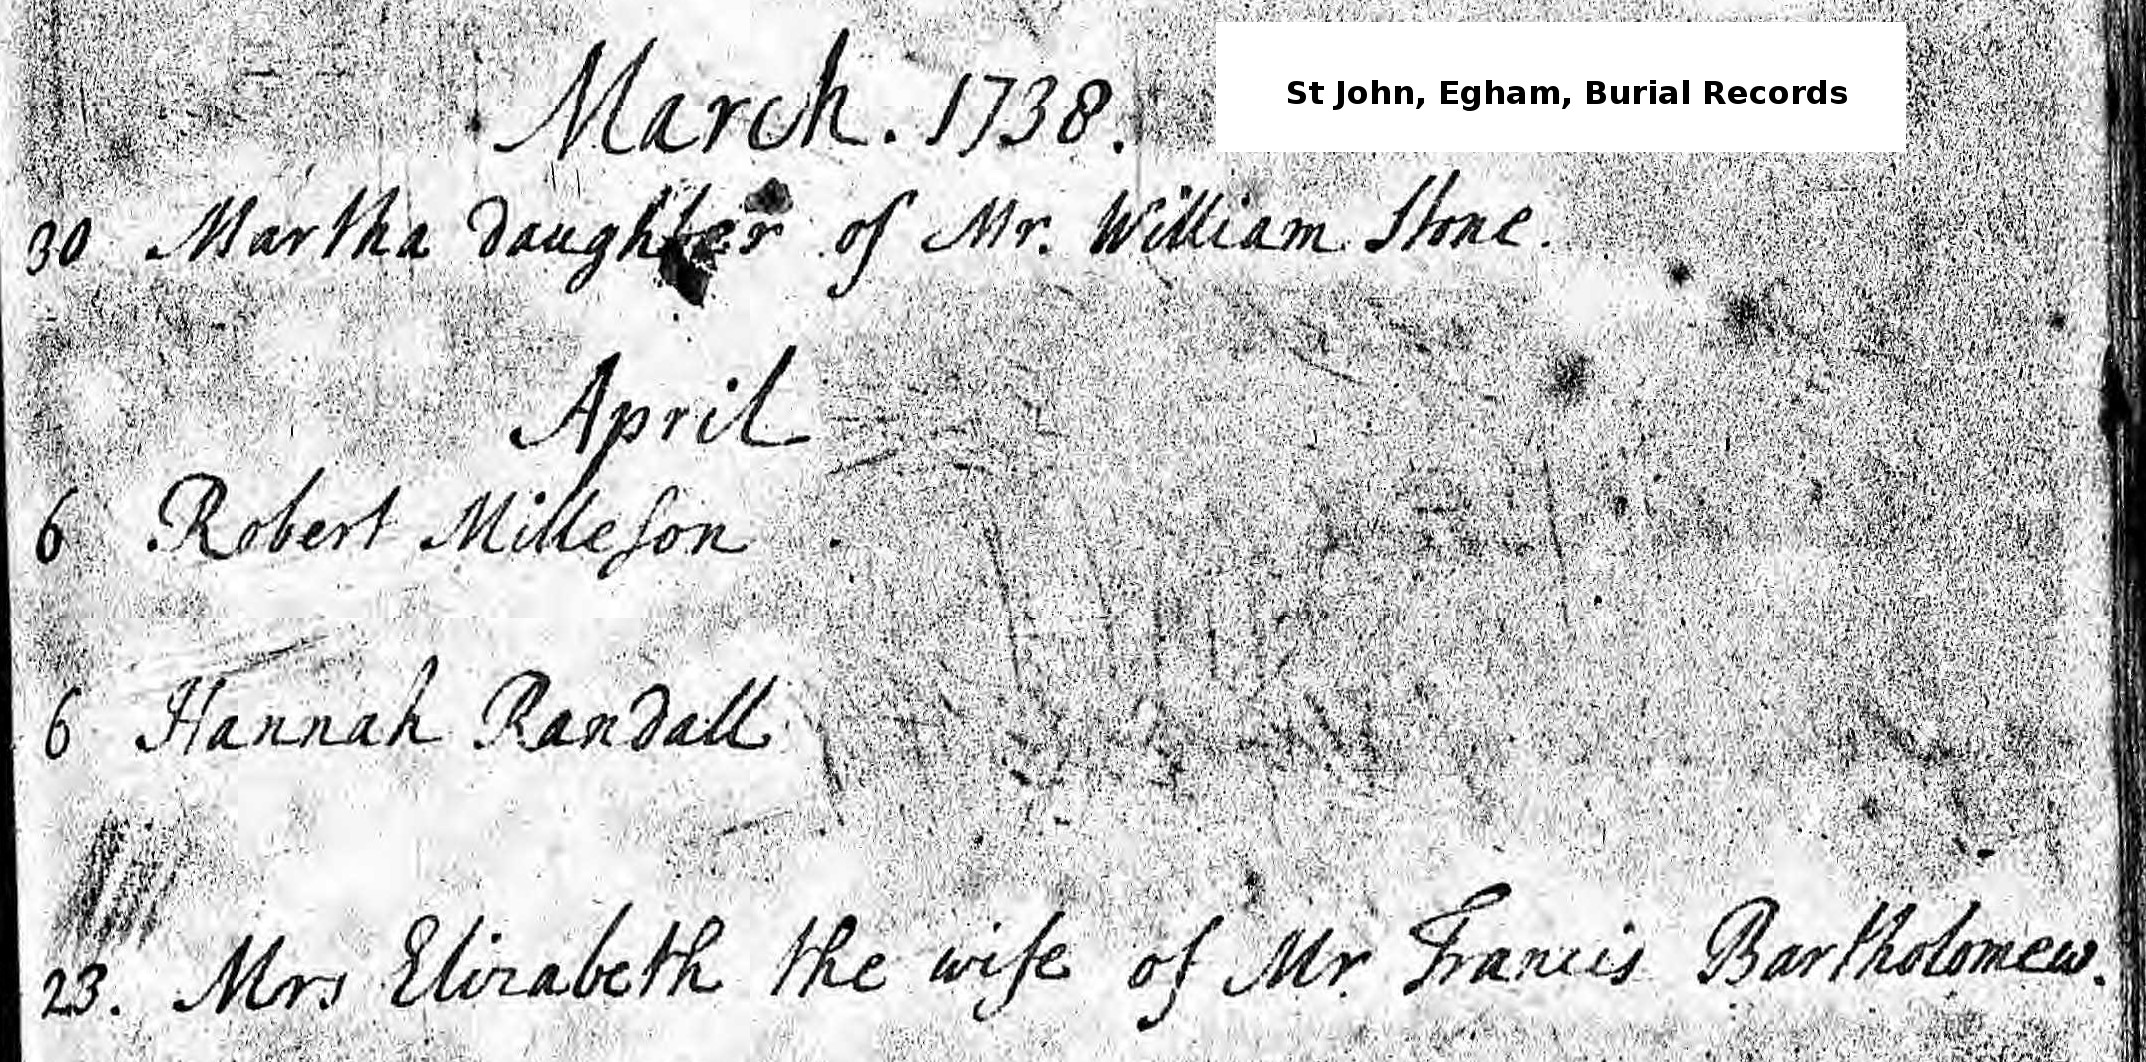 March. 1738.
St John, Egham, Burial Records
30 Martha daughter of Mr. William Stone.
April
6 Robert Milleson
6 Hannah Randall
23. Mrs Elizabeth the wife of Mr Francis Bartholomew.